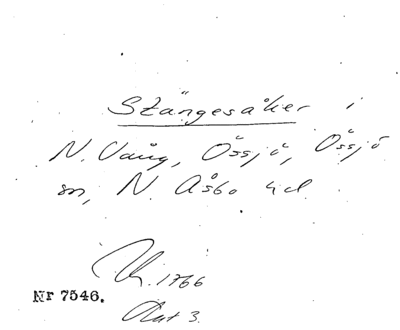 Stängesåker i
N. Vång, Össjö, Össjö
sn, N. Åsbo hd
1766
Nr 7546.
Akt 3.